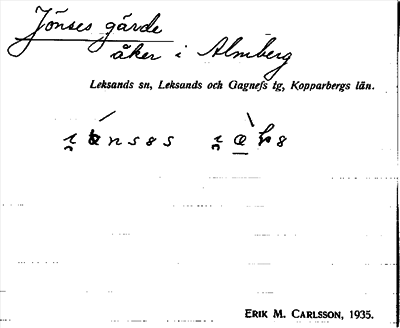 Jönses gärde
åker i Almberg
Leksands sn, Leksands och Gagnefs tg, Kopparbergs län.
ERIK M. CARLSSON, 1935.